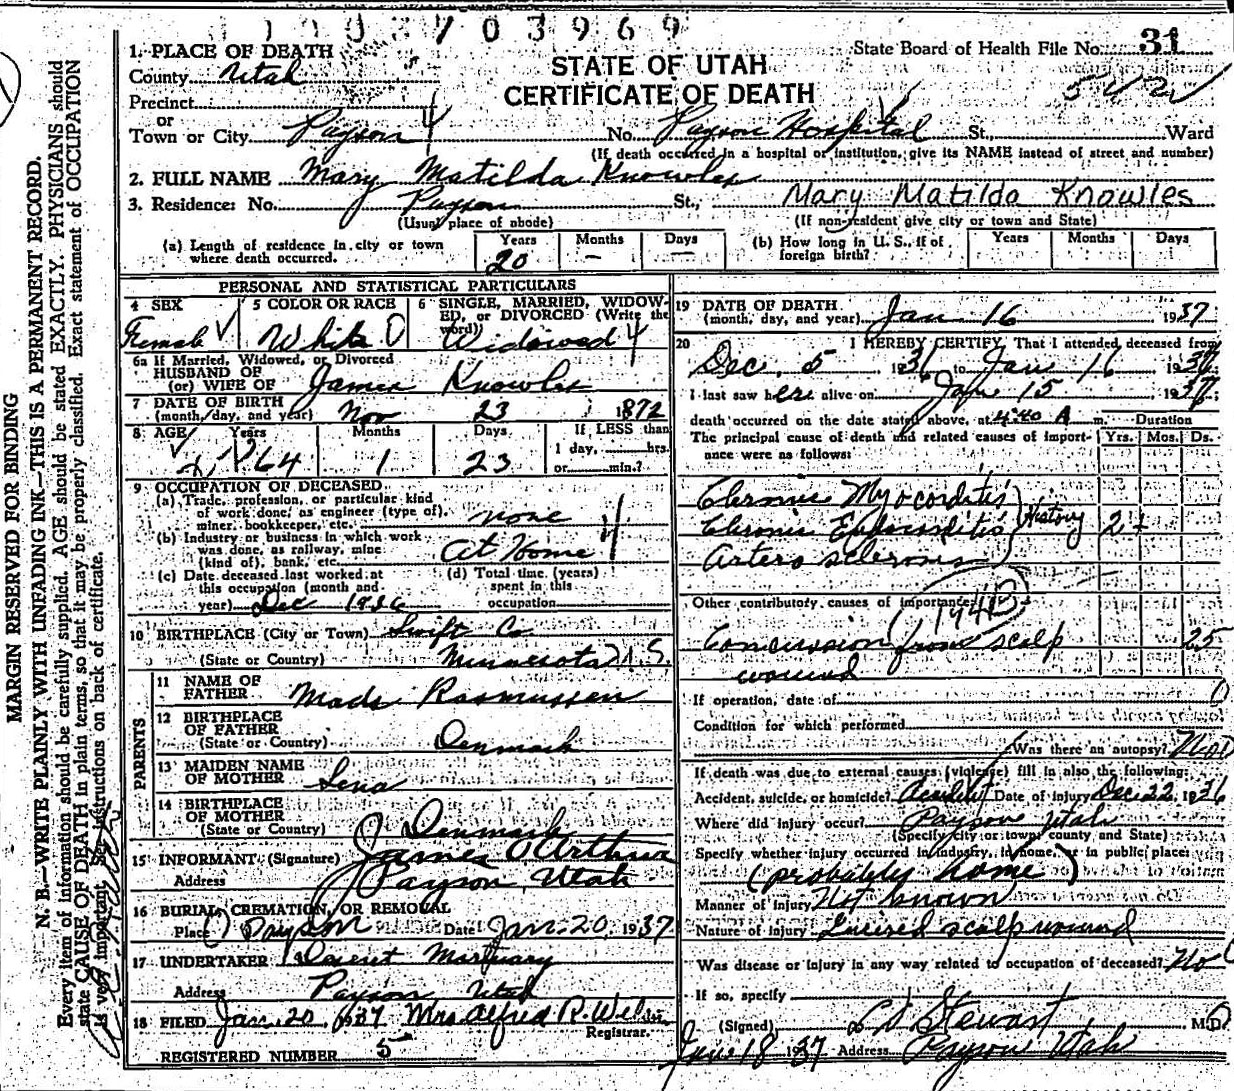 1003703969
State Board of Health File No. 31
1. PLACE OF DEATH
County Utah
STATE OF UTAH
CERTIFICATE OF DEATH
Precinct
or
Town or City Payson No. Payson Hospital St., Ward
(If death occurred in a hospital or institution, give its NAME instead of street and number)
2. FULL NAME Mary Matilda Knowles
3. Residence: No. Payson St., Mary Matilda Knowles
(Usual place of abode) (If non-resident give city or town and State)
(a) Length of residence in city or town where death occurred. Years 20 Months – Days –
(b) How long in U. S., if of foreign birth? Years Months Days
PERSONAL AND STATISTICAL PARTICULARS
4 SEX Female
5 COLOR OR RACE White
6 SINGLE, MARRIED, WIDOWED, or DIVORCED (Write the word) Widowed
6a If Married, Widowed, or Divorced
HUSBAND OF
(or) WIFE OF James Knowles
7 DATE OF BIRTH
(month, day, and year) Nov 23 1872
8 AGE Years 64 Months 1 Days 23 If LESS than 1 day, hrs. or min.?
9 OCCUPATION OF DECEASED
(a) Trade, profession, or particular kind
of work done, as engineer (type of),
miner, bookkeeper, etc. none
(b) Industry or business in which work
was done, as railway, mine
(kind of), bank, etc. At Home
(c) Date deceased last worked at
this occupation (month and
year) Dec 1936
(d) Total time (years)
spent in this
occupation
10 BIRTHPLACE (City or Town) Swift Co
(State or Country) Minnesota
PARENTS
11 NAME OF
FATHER Mads Rasmussen
12 BIRTHPLACE
OF FATHER
(State or Country) Denmark
13 MAIDEN NAME
OF MOTHER Lena
14 BIRTHPLACE
OF MOTHER
(State or Country) Denmark
15 INFORMANT (Signature) James Arthur
Address Payson, Utah
16 BURIAL, CREMATION, OR REMOVAL
Place Payson Date Jan. 20, 1937
17 UNDERTAKER Deseret Mortuary
Address Payson Utah
18 FILED Jan. 20 1937 Mrs Alfred R.
Registrar.
REGISTERED NUMBER 5
19 DATE OF DEATH
(month, day, and year) Jan 16 1937
20 I HEREBY CERTIFY, That I attended deceased from
Dec. 5 1936 to Jan 16 1937
I last saw her alive on Jan 15 1937;
death occurred on the date stated above, at 4:40 A m. Duration
The principal cause of death and related causes of importance were as follows: Yrs. Mos. Ds.
Chronic Myocarditis
Chronic History 2+
Arterosclerosis
Other contributory causes of importance:
Concussion from scalp 25
wound
If operation, date of
Condition for which performed
Was there an autopsy? No
If death was due to external causes (violence) fill in also the following:
Accident, suicide, or homicide? Accident Date of injury Dec 22, 1936
Where did injury occur? Payson Utah
(Specify city or town, county and State)
Specify whether injury occurred in industry, in home, or in public place:
(probably home)
Manner of Injury Not known
Nature of Injury Incised scalp wound
Was disease or injury in any way related to occupation of deceased? No
If so, specify
(Signed) L D Stewart M.D.
Jan 18 1937 Address Payson Utah
MARGIN RESERVED FOR BINDING
N. B.—WRITE PLAINLY WITH UNFADING INK—THIS IS A PERMANENT RECORD.
Every item of information should be carefully supplied. AGE should be stated EXACTLY. PHYSICIANS should
state CAUSE OF DEATH in plain terms, so that it may be properly classified. Exact statement of OCCUPATION
is very important. See instructions on back of certificate.